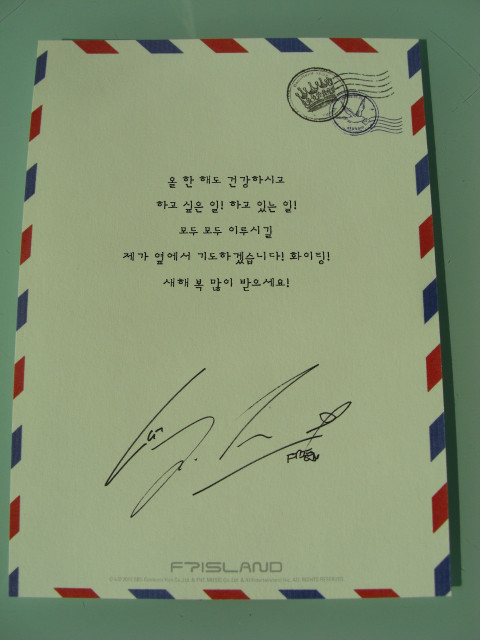 올 한 해도 건강하시고
하고 싶은 일! 하고 있는 일!
모두 모두 이루시길
제가 옆에서 기도하겠습니다! 화이팅!
새해 복 많이 받으세요!
FTISLAND